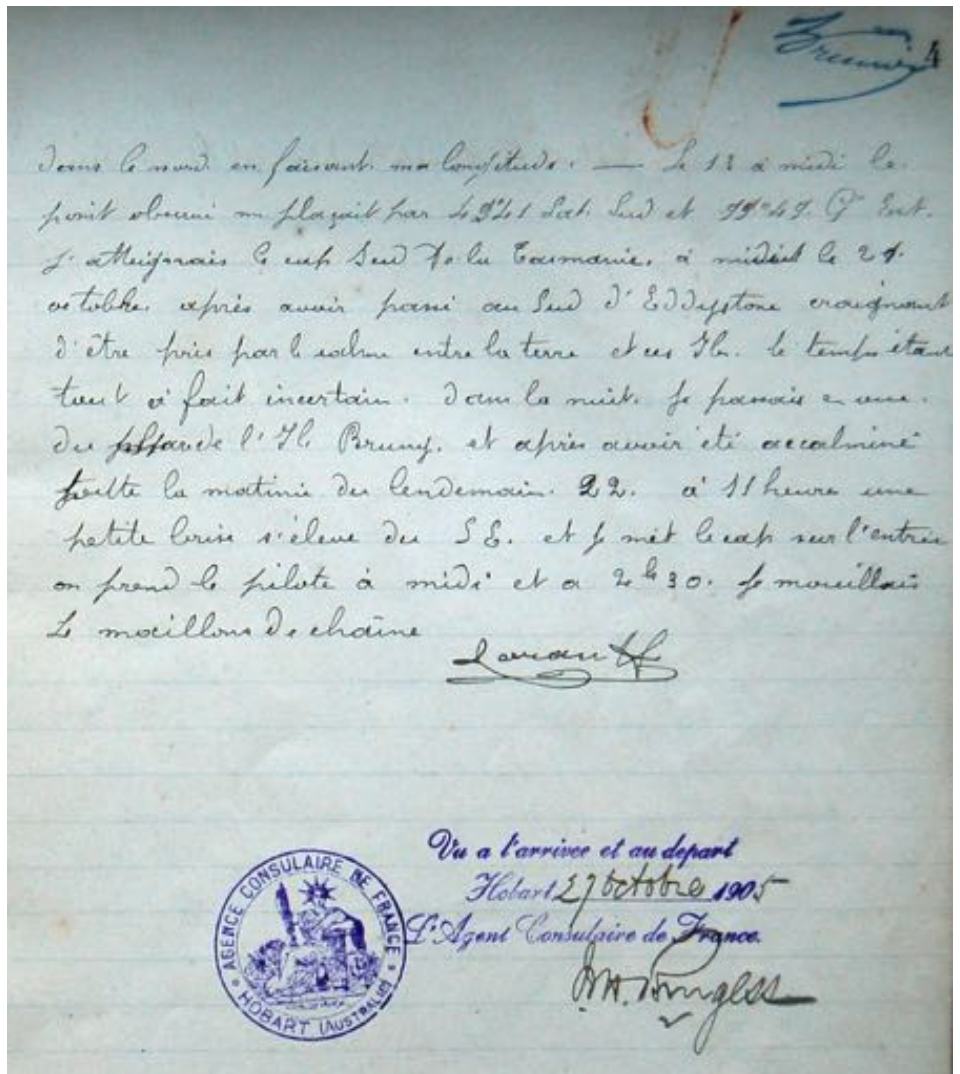 4
dans le nord en faisant ma longitude. — Le 13 à midi le
point observé me plaçait par Lat. Sud et 99°49. Gr Est.
J'atteignais le cap Sud de la Tasmanie, à midi le 21
octobre. après avoir passé au Sud d'Eddystone craignant
d'être pris par le calme entre la terre et ces Iles. le temps étant
tout à fait incertain. Dans la nuit. Je passais en vue.
du phare de l'Ile Bruny. et après avoir été accalminé
toutte la matinée du lendemain. 22. à 11 heure une
petite brise s'éleve du S E. et je met le cap sur l'entrée
on prend le pilote à midi et a 2h30. Je mouillais
maillons de chaîne
Vu a l'arrivee et au depart
Hobart 27 Octobre 1905
L'Agent Consulaire de France.
AGENCE CONSULAIRE DE FRANCE
HOBART (AUSTRALIE)